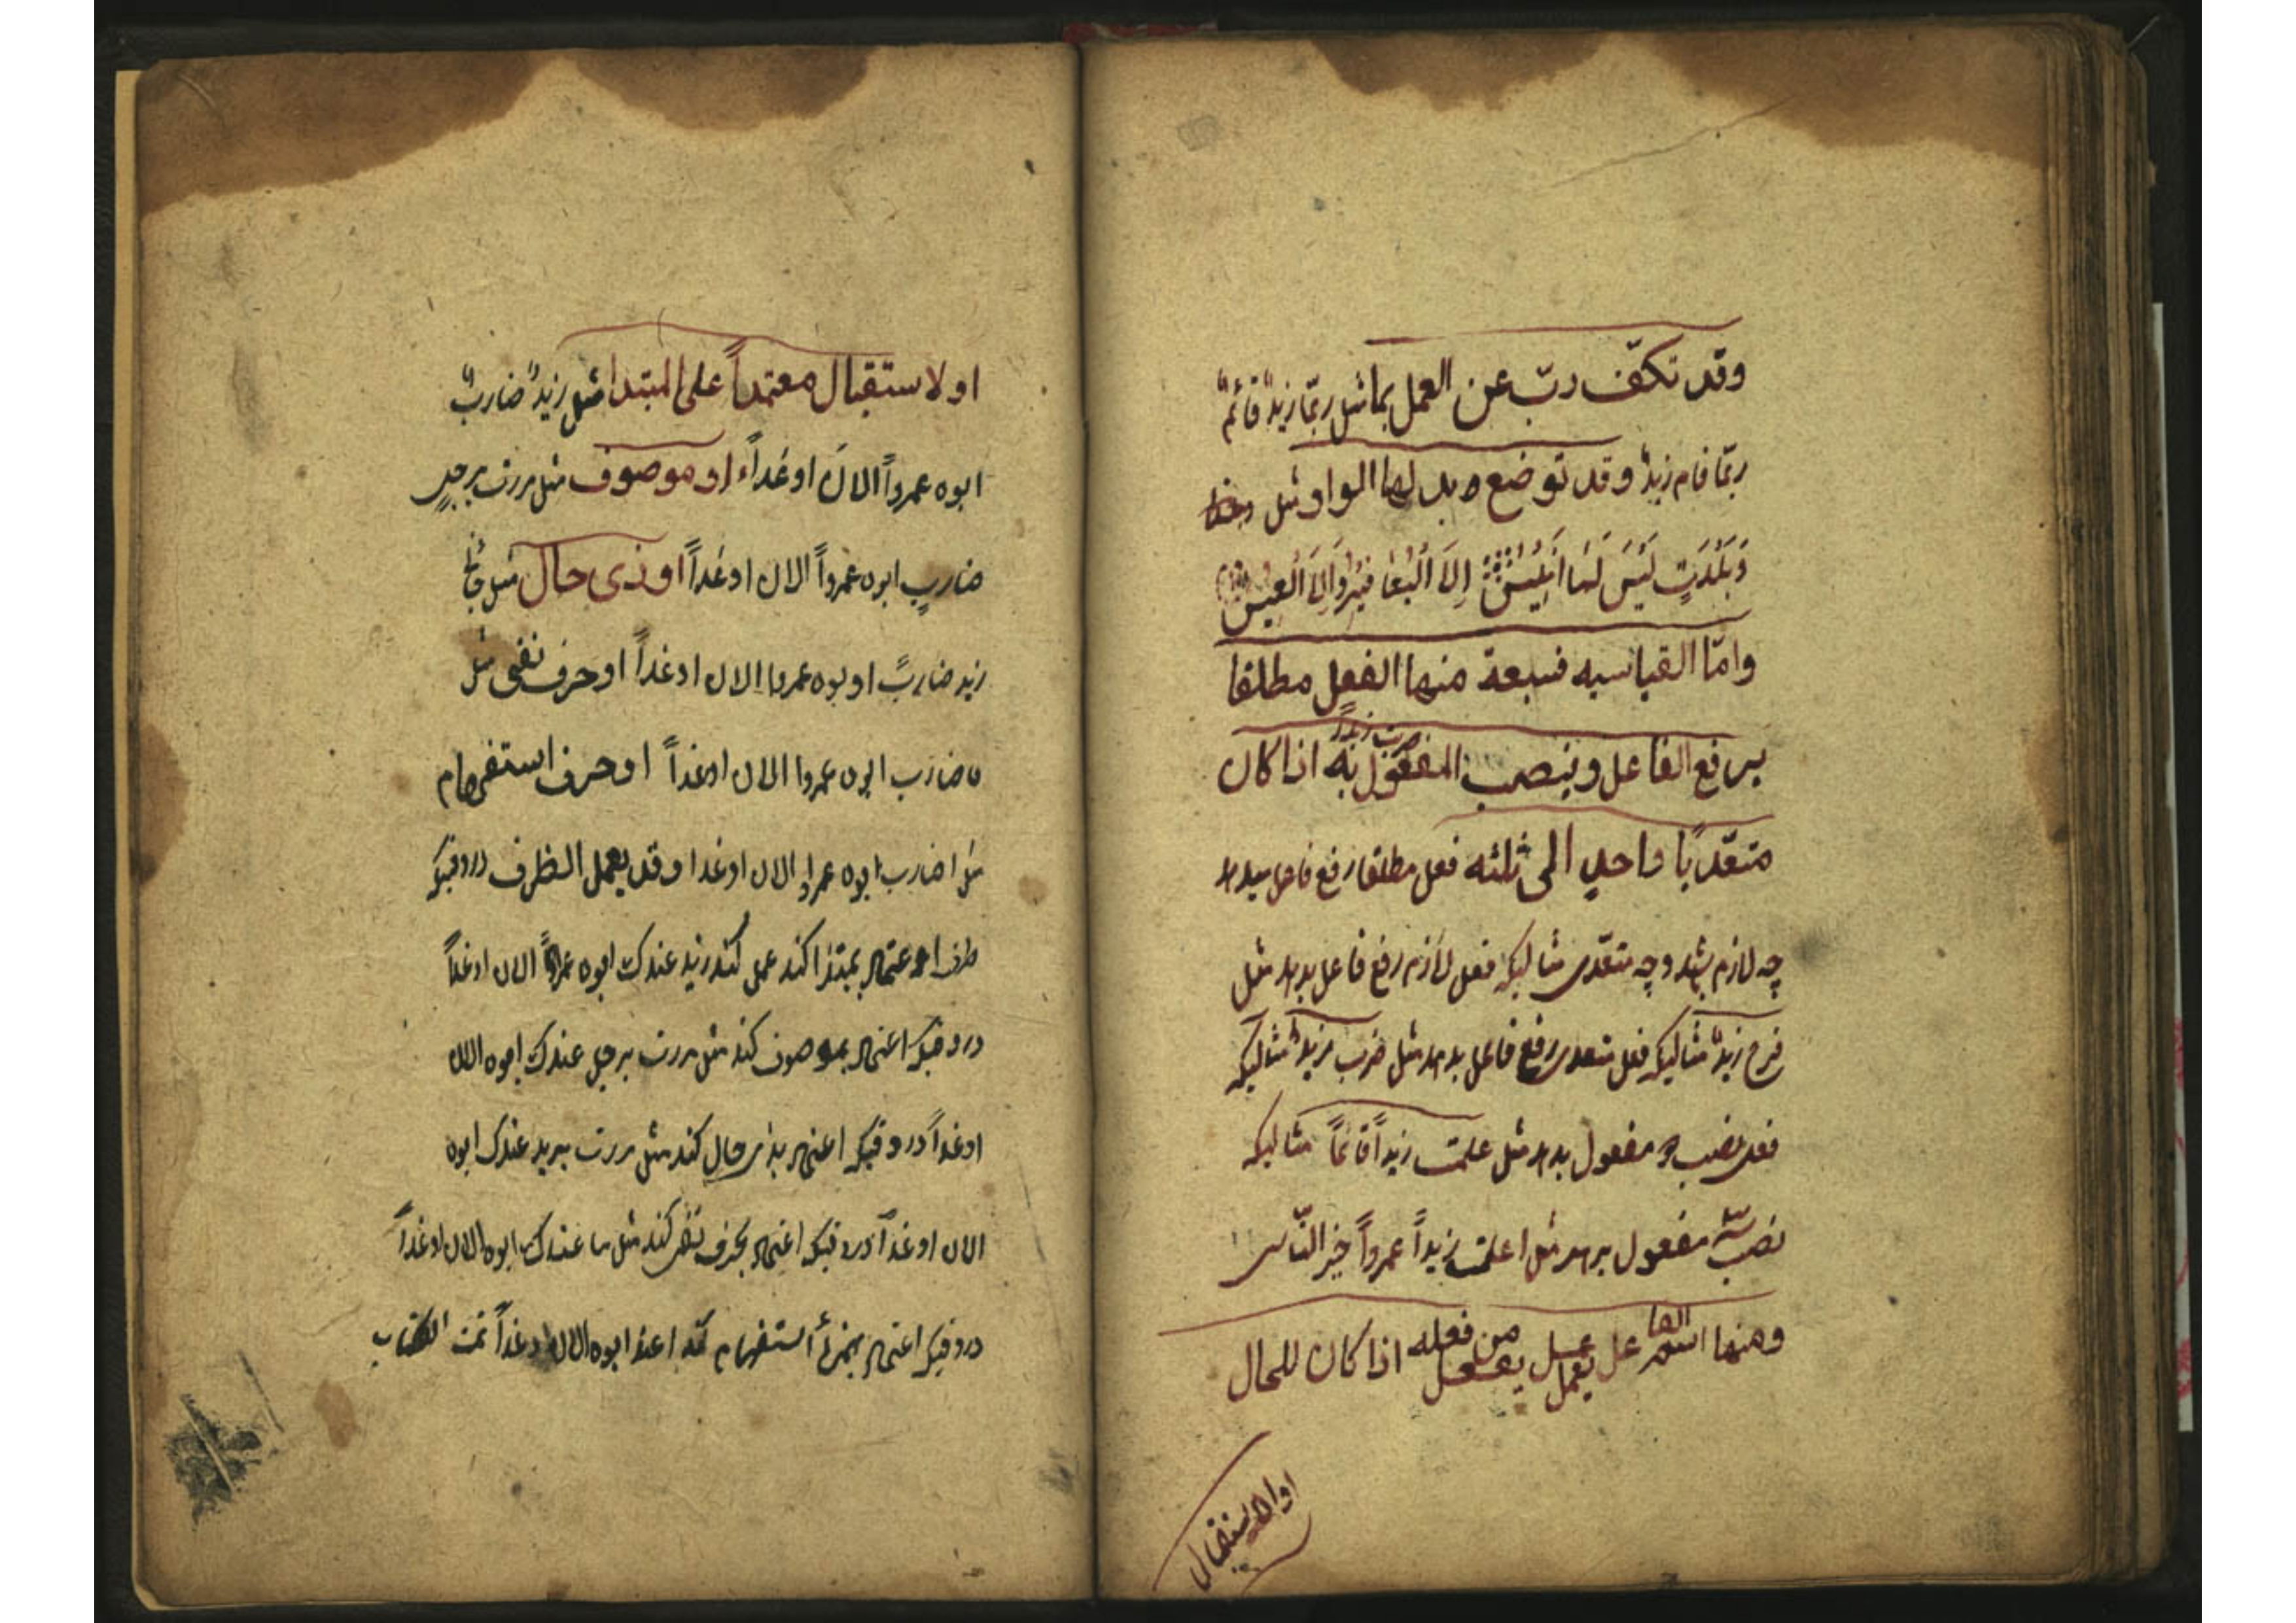 وقد تكفّ ربّ عن العمل بما مثل ربّما زيدٌ قائمٌ
ربّما قام زيدٌ وقد توضع بدلها الواو مثل
وَبَلْدَتٍ لَيْسَ لَهَا أَنِيسٌ إِلاَّ الْيَعَا فِيْرُ وَاِلاَّ الْعِيسُ
وامّا القياسيه فسبعة منها الفعل مطلقا
يرفع الفاعل وينصب المفعول به اذا كان
ضرب زيدٌ
متعدّيًا واحدٍ الى ثلثه فعل مطلقا رفع فاعل ميدهد
چه لازم باشد وچه متعدّى مثاليكه فعل لازم رفع فاعل بدهد مثل
فرح زيدٌ مثاليكه فعل متعدى رفع فاعل بدهد مثل ضرب زيدٌ مثاليكه
فعل نصب دو مفعول بدهد مثل علمت زيداً قائماً مثاليكه
نصب سه مفعول بدهد مثل اعلمت زيداً عمرواً خير النّاس
ومنها اسم الفاعل يعمل عمل من فعله اذا كان للحال
او الاستقبال
او لاستقبال معتمداً على المبتدا مثل زيدٌ ضاربٌ
ابوه عمرواً الان او غداً او موصوف مثل مررت برجلٍ
ضاربٍ ابوه عمرواً الان او غداً او ذى حال مثل جائَ
زيد ضاربً ابوه عمروا الان او غداً او حرف نفى مثل
ما ضارب ابوه عمروا الان او غداً او حرف استفهام
مثل اضارب ابوه عمرا الان او غدا وقد يعمل الظرف در وقتيكه
ظرف اعتماد بمبتدا كند عمل كند زيد عندك ابوه عمرواً الان او غداً
در وقتيكه اعتماد بموصوف كند مثل مررت برجل عندك ابوه الان
او غداً در وقتيكه اعتماد بذى حال كند مثل مررت بزيد عندك ابوه
الان او غداً در وقتيكه اعتماد بحرف نفى كند مثل ما عندك ابوه الان او غداً
در وقتيكه اعتماد بهمزۀ استفهام كند ابوه الان او غداً تمت الكتاب